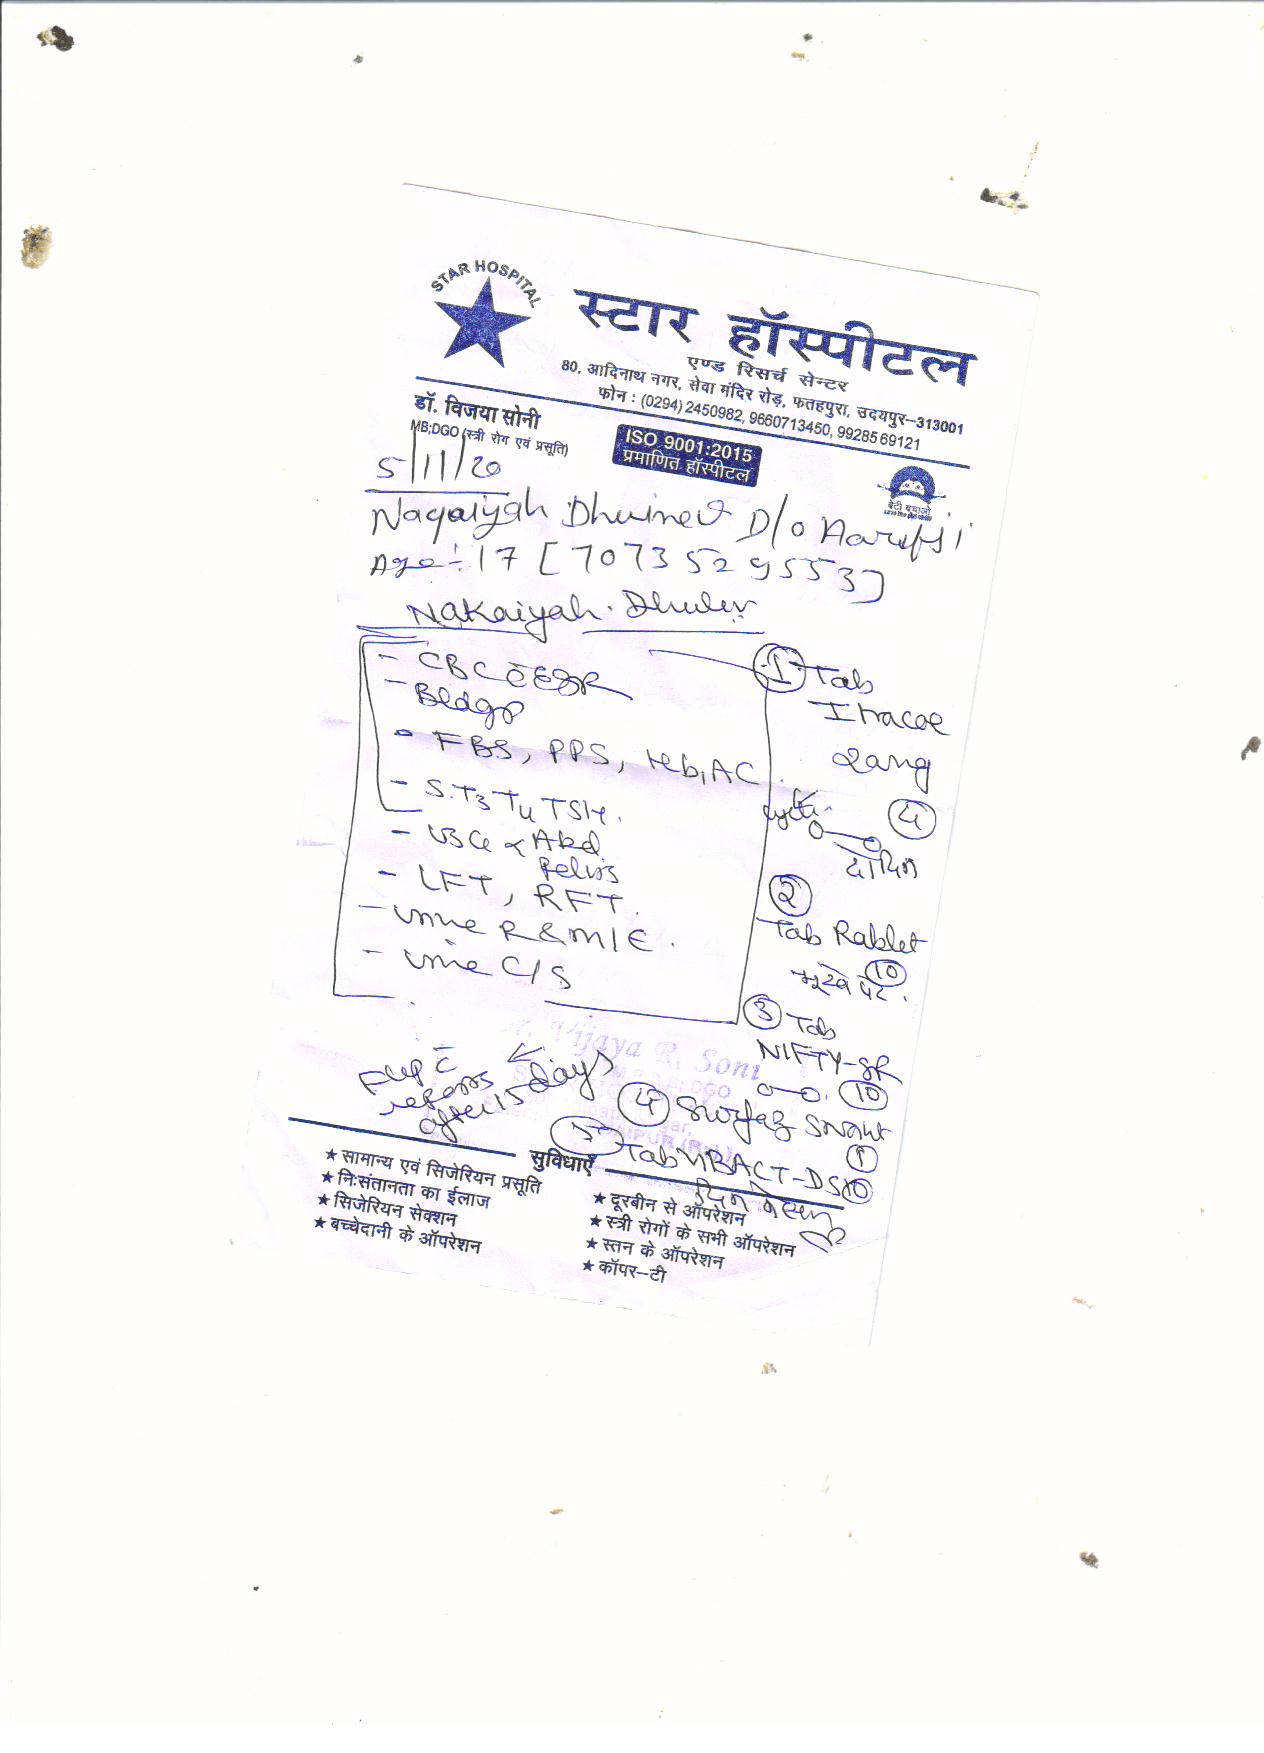 STAR HOSPITAL
स्टार हॉस्पीटल
एण्ड रिसर्च सेन्टर
80, आदिनाथ नगर, सेवा मंदिर रोड़, फतहपुरा, उदयपुर–313001
फोन : (0294) 2450982, 9660713450, 9928569121
डॉ. विजया सोनी
MB;DGO (स्त्री रोग एवं प्रसूति)
ISO 9001:2015
प्रमाणित हॉस्पीटल
बेटी बचाओ
5/11/20
D/o
Age :- 17 [7073529553]
Nakaiyah.
- CBC c̄ ESR
- Bldgp
- FBS, PPS, Hb1AC.
- S.T3 T4 TSH.
- USG Abd
Pelvis
- LFT, RFT.
- Urine R & M/E.
- Urine C/S
1 Tab
4
दो दिन
2
Tab Rablet
10
भूखे पेट.
3 Tab
NIFTY-SR
o—o. 10
4 Surfaz
1
5 Tab VBACT-DS 10
F/up c̄
reports
after 15 days
Dr. Vijaya R. Soni
DGO
सुविधाएँ
★ सामान्य एवं सिजेरियन प्रसूति
★ निःसंतानता का ईलाज
★ सिजेरियन सेक्शन
★ बच्चेदानी के ऑपरेशन
★ दूरबीन से ऑपरेशन
★ स्त्री रोगों के सभी ऑपरेशन
★ स्तन के ऑपरेशन
★ कॉपर–टी